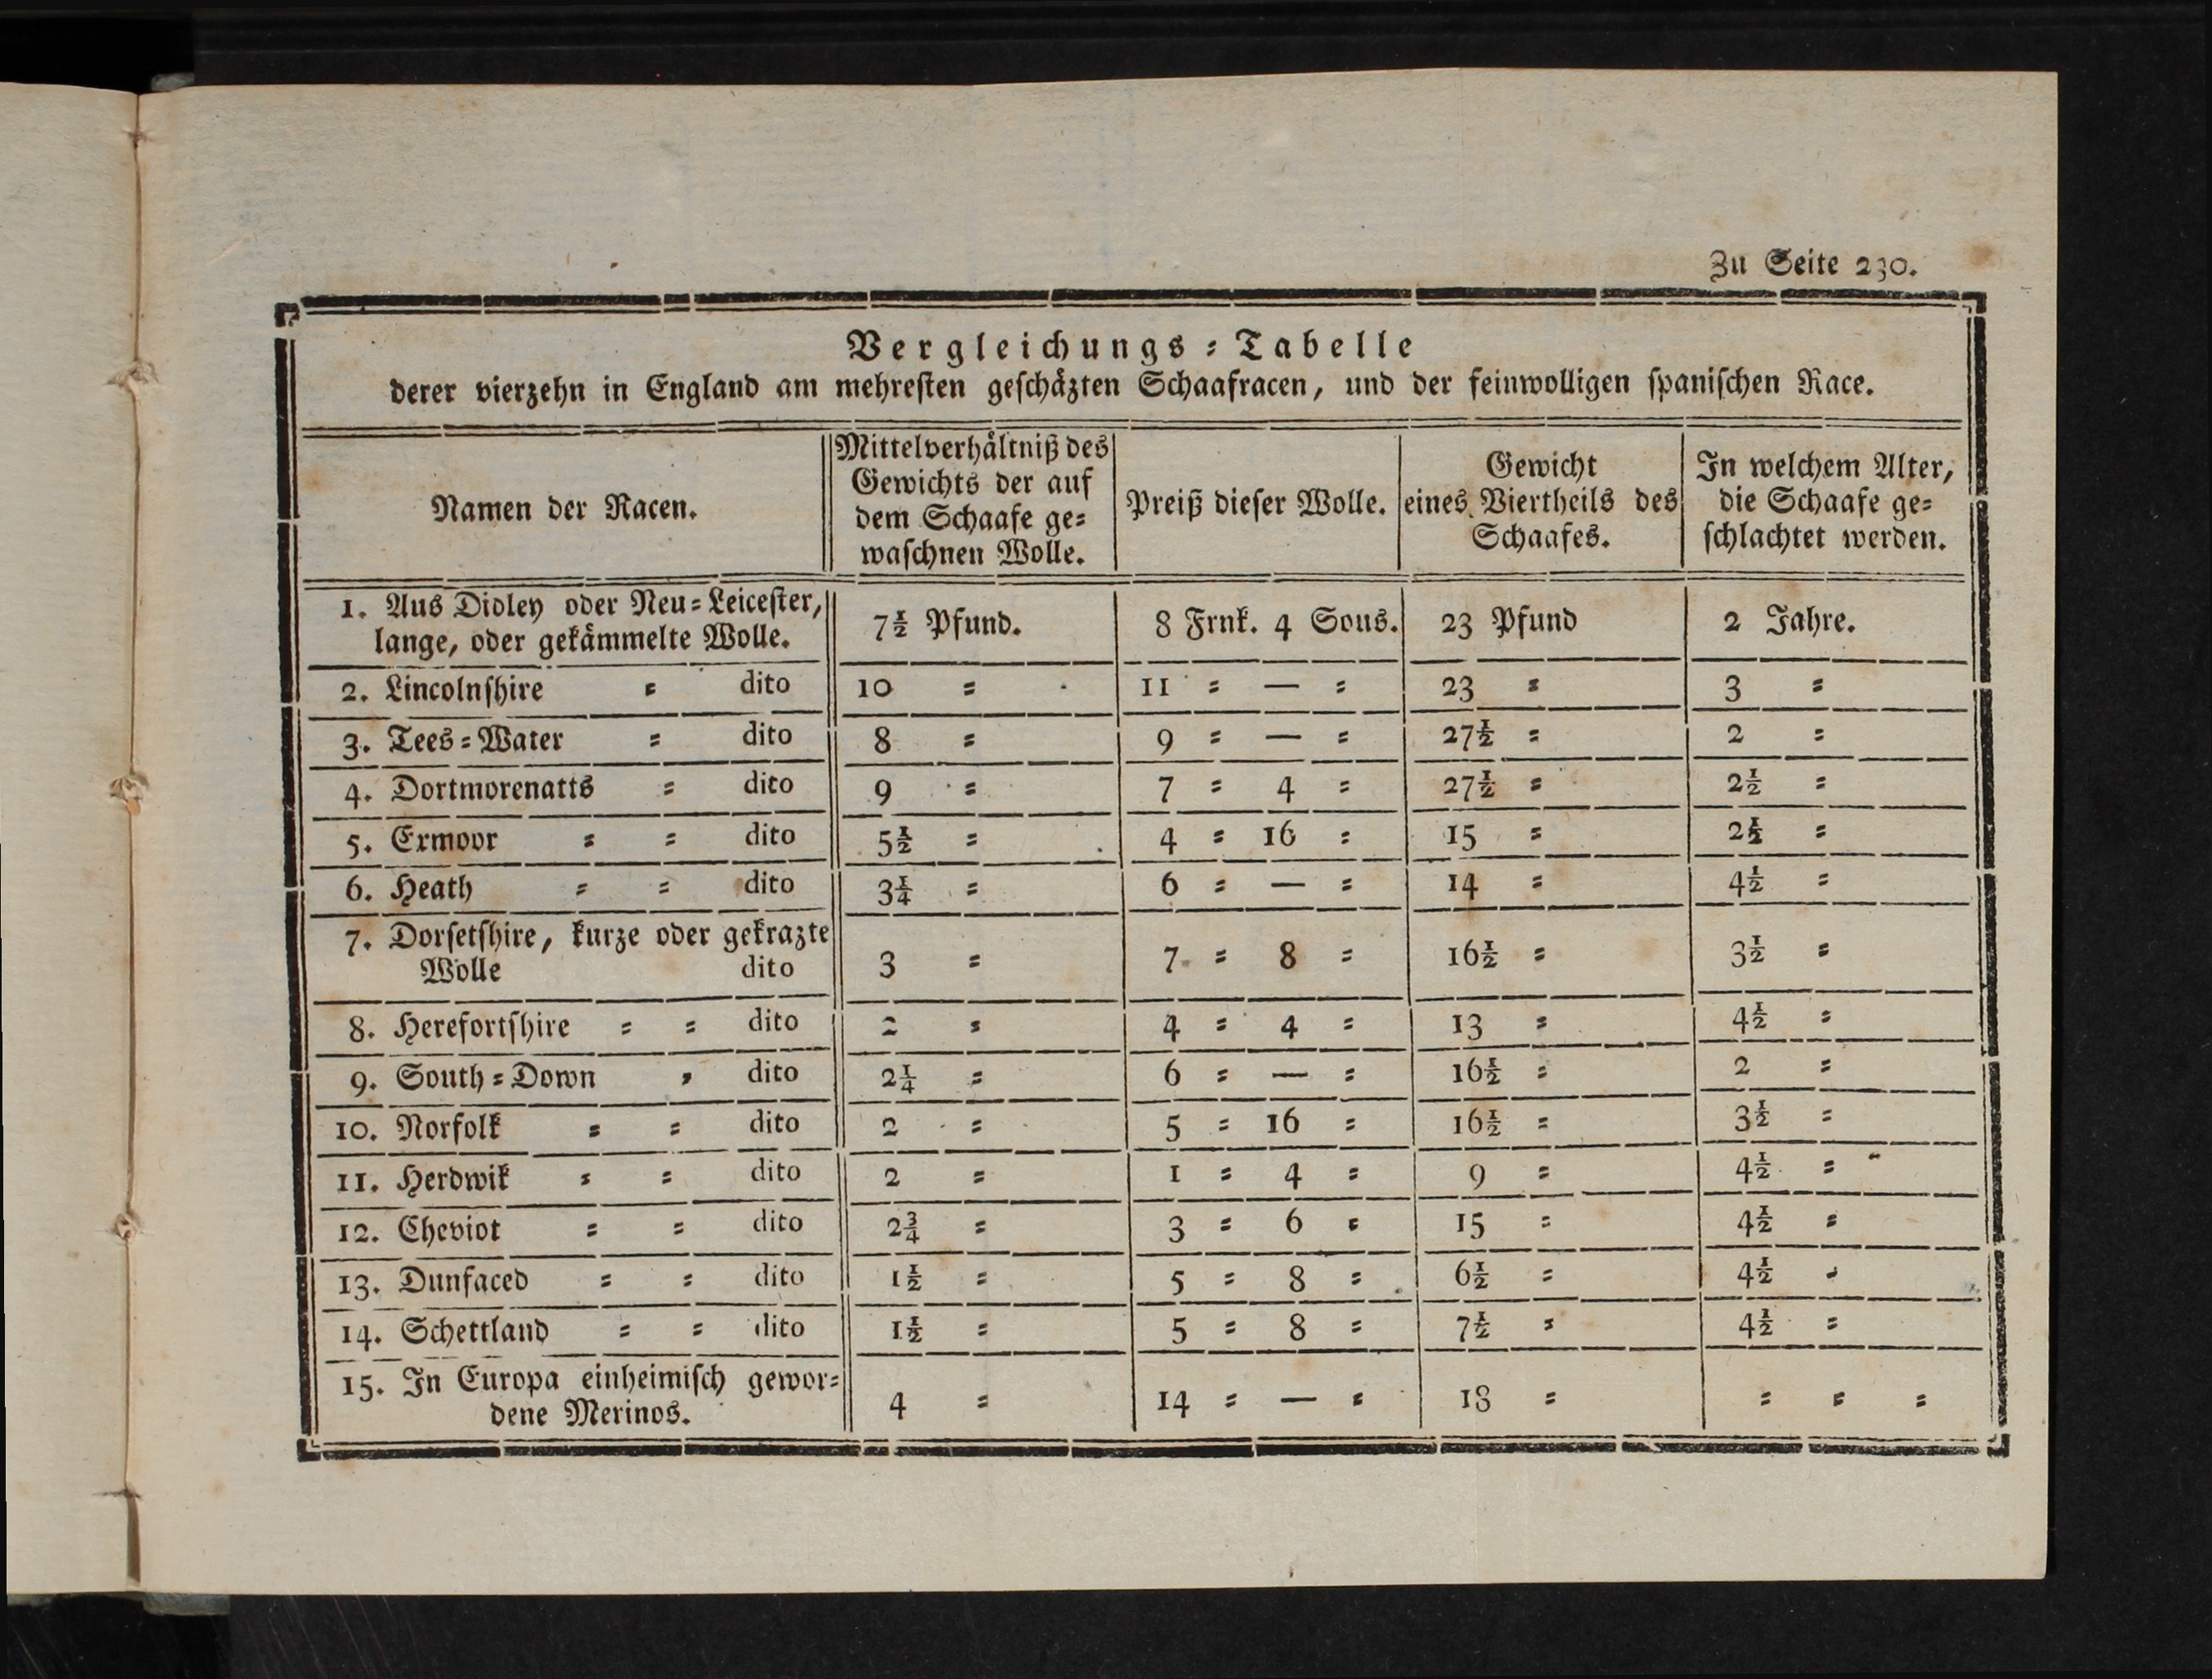 Zu Seite 230.
Vergleichungs⸗Tabelle
derer vierzehn in England am mehreſten geſchäzten Schaafracen, und der feinwolligen ſpaniſchen Race.
Namen der Racen.
Mittelverhältniß des
Gewichts der auf
dem Schaafe ge⸗
waſchnen Wolle.
Preiß dieſer Wolle.
Gewicht
eines Viertheils des
Schaafes.
In welchem Alter,
die Schaafe ge⸗
ſchlachtet werden.
1. Aus Didley oder Neu⸗Leiceſter,
lange, oder gekämmelte Wolle.
7½ Pfund. 8 Frnk. 4 Sous. 23 Pfund 2 Jahre.
2. Lincolnſhire ⸗ dito 10 ⸗ 11 ⸗ — ⸗ 23 ⸗ 3 ⸗
3. Tees⸗Water ⸗ dito 8 ⸗ 9 ⸗ — ⸗ 27½ ⸗ 2 ⸗
4. Dortmorenatts ⸗ dito 9 ⸗ 7 ⸗ 4 ⸗ 27½ ⸗ 2½ ⸗
5. Exmoor ⸗ ⸗ dito 5½ ⸗ 4 ⸗ 16 ⸗ 15 ⸗ 2½ ⸗
6. Heath ⸗ ⸗ dito 3¼ ⸗ 6 ⸗ — ⸗ 14 ⸗ 4½ ⸗
7. Dorſetſhire, kurze oder gekrazte
Wolle dito 3 ⸗ 7 ⸗ 8 ⸗ 16½ ⸗ 3½ ⸗
8. Herefortſhire ⸗ ⸗ dito 2 ⸗ 4 ⸗ 4 ⸗ 13 ⸗ 4½ ⸗
9. South⸗Down ⸗ dito 2¼ ⸗ 6 ⸗ — ⸗ 16½ ⸗ 2 ⸗
10. Norfolk ⸗ ⸗ dito 2 ⸗ 5 ⸗ 16 ⸗ 16½ ⸗ 3½ ⸗
11. Herdwik ⸗ ⸗ dito 2 ⸗ 1 ⸗ 4 ⸗ 9 ⸗ 4½ ⸗
12. Cheviot ⸗ ⸗ dito 2¾ ⸗ 3 ⸗ 6 ⸗ 15 ⸗ 4½ ⸗
13. Dunfaced ⸗ ⸗ dito 1½ ⸗ 5 ⸗ 8 ⸗ 6½ ⸗ 4½ ⸗
14. Schettland ⸗ ⸗ dito 1½ ⸗ 5 ⸗ 8 ⸗ 7½ ⸗ 4½ ⸗
15. In Europa einheimiſch gewor⸗
dene Merinos. 4 ⸗ 14 ⸗ — ⸗ 18 ⸗ ⸗ ⸗ ⸗